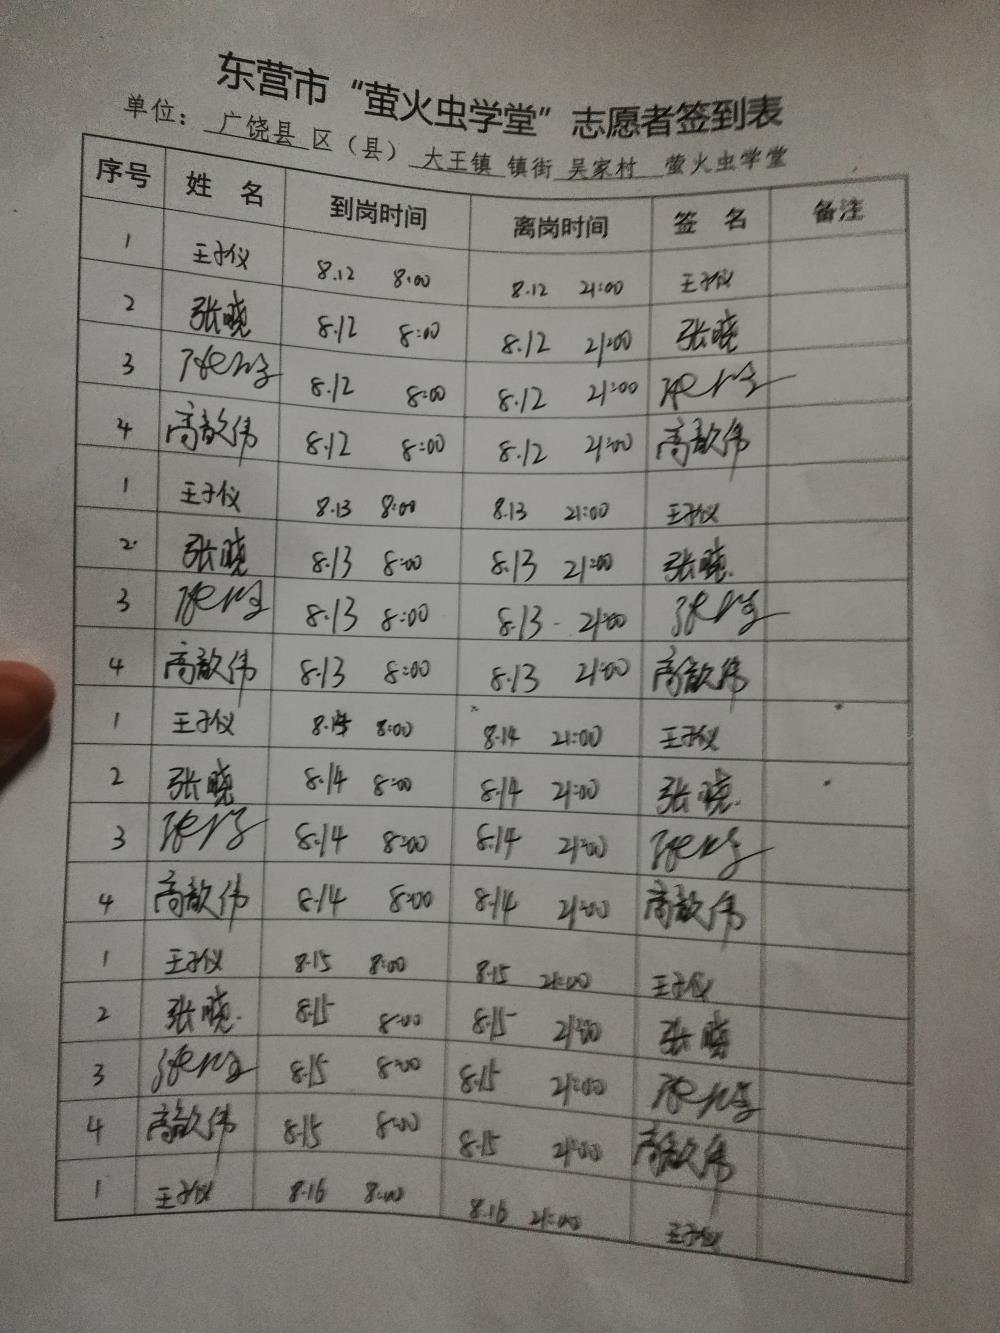 东营市“萤火虫学堂”志愿者签到表
单位：广饶县 区（县） 大王镇 镇街 吴家村 萤火虫学堂
序号 姓 名 到岗时间 离岗时间 签 名 备注
1 王子仪 8.12 8:00 8.12 21:00 王子仪
2 张晓 8.12 8:00 8.12 21:00 张晓
3 8.12 8:00 8.12 21:00
4 高歆伟 8.12 8:00 8.12 21:00 高歆伟
1 王子仪 8.13 8:00 8.13 21:00 王子仪
2 张晓 8.13 8:00 8.13 21:00 张晓
3 8.13 8:00 8.13 21:00
4 高歆伟 8.13 8:00 8.13 21:00 高歆伟
1 王子仪 8.14 8:00 8.14 21:00 王子仪
2 张晓 8.14 8:00 8.14 21:00 张晓
3 8.14 8:00 8.14 21:00
4 高歆伟 8.14 8:00 8.14 21:00 高歆伟
1 王子仪 8.15 8:00 8.15 21:00 王子仪
2 张晓 8.15 8:00 8.15 21:00 张晓
3 8.15 8:00 8.15 21:00
4 高歆伟 8.15 8:00 8.15 21:00 高歆伟
1 王子仪 8.16 8:00 8.16 21:00 王子仪